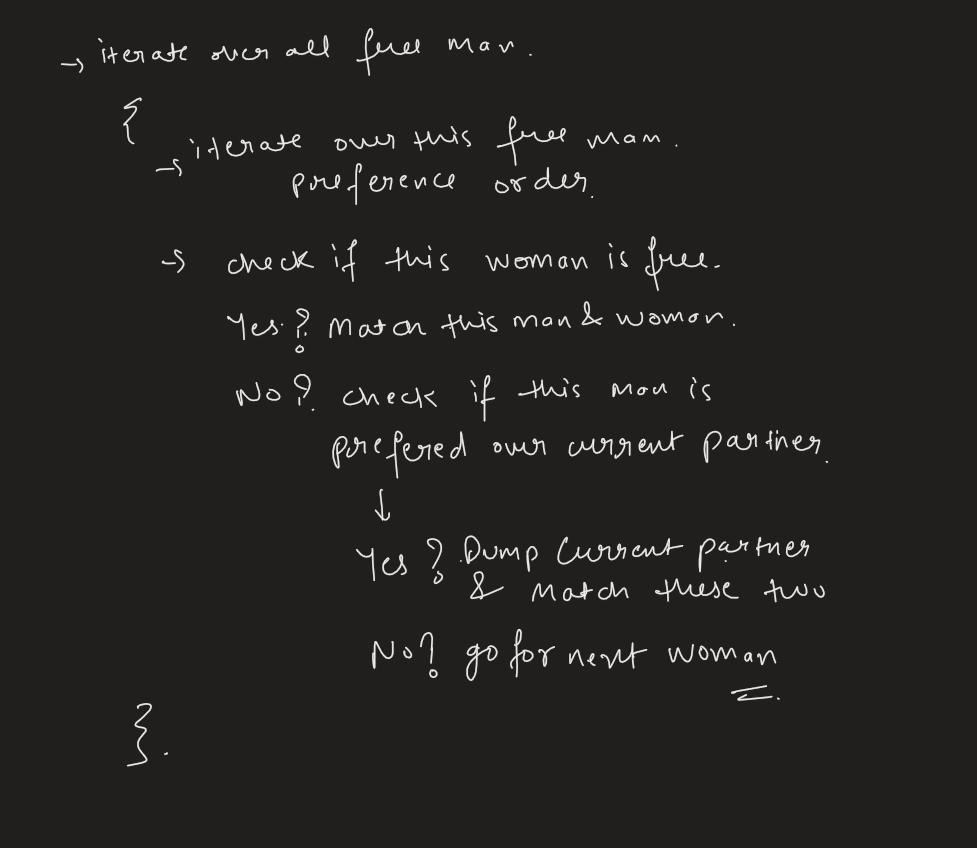 → iterate over all free man.
{
→ iterate over this free man.
preference order.
→ check if this woman is free.
Yes? Match this man & woman.
No? check if this man is
prefered over current partner.
↓
Yes? Dump Current partner
& Match these two
No? go for next woman
}.